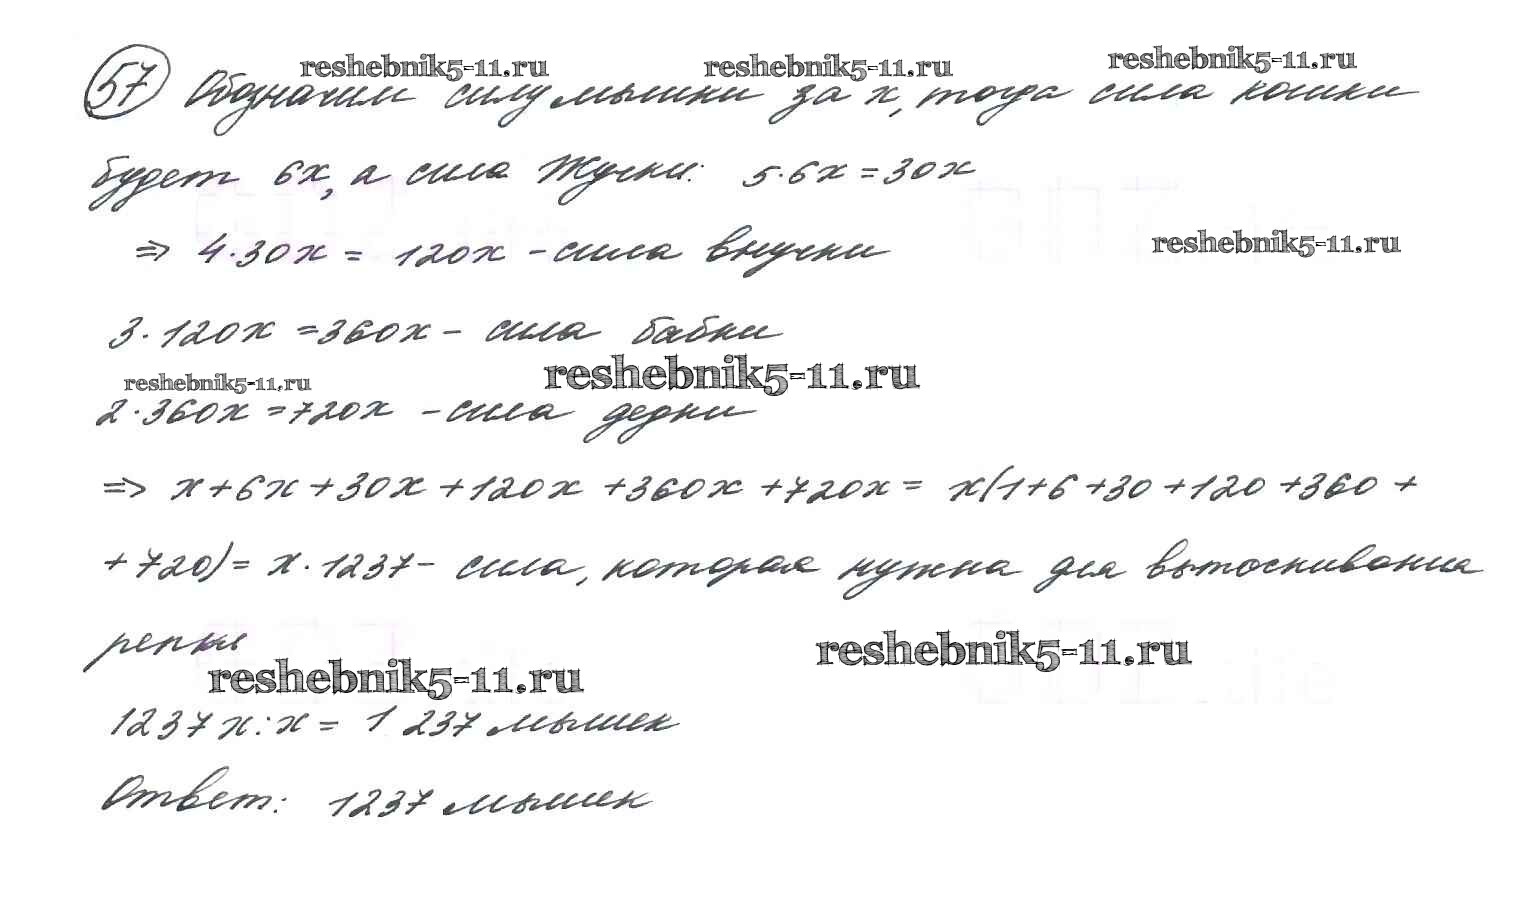 reshebnik5-11.ru reshebnik5-11.ru reshebnik5-11.ru
57 Обозначим силу мышки за x, тогда сила кошки
будет 6x, а сила Жучки: 5·6x=30x
⇒ 4·30x = 120x - сила внучки
reshebnik5-11.ru
3·120x =360x - сила бабки
reshebnik5-11.ru reshebnik5-11.ru
2·360x =720x - сила дедки
⇒ x+6x+30x+120x+360x+720x= x(1+6+30+120+360+
+720)= x·1237- сила, которая нужна для вытоскивания
репки
reshebnik5-11.ru reshebnik5-11.ru
1237x:x= 1 237 мышек
Ответ: 1237 мышек